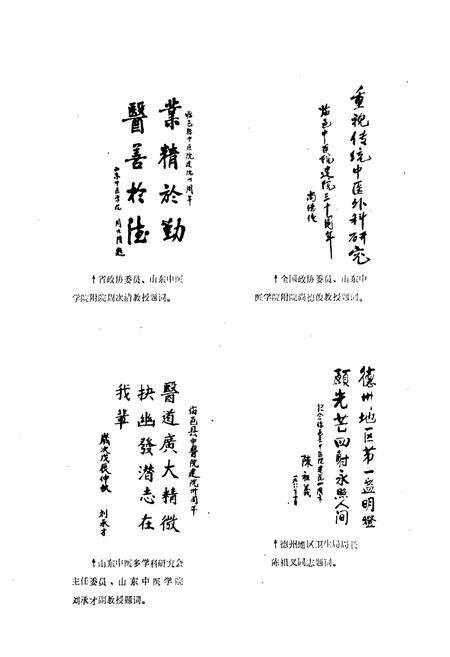 临邑县中医院建院卅周年
業精於勤
醫善於德
山东中医学院
周次清题
↑省政协委员、山东中医
学院附院周次清教授题词。
重视传统中医外科研究
临邑中医院建院三十周年
尚德俊
↑全国政协委员、山东中
医学院附院尚德俊教授题词。
临邑县中醫院建院卅周年
醫道廣大精微
抉幽發潜志在
我輩
歲次戊辰仲秋
刘承才
↑山东中医多学科研究会
主任委员、山东中医学院
刘承才副教授题词。
德州地区第一盏明燈
願光芒四射永照人间
陈祖义
↑德州地区卫生局局长
陈祖义同志题词。